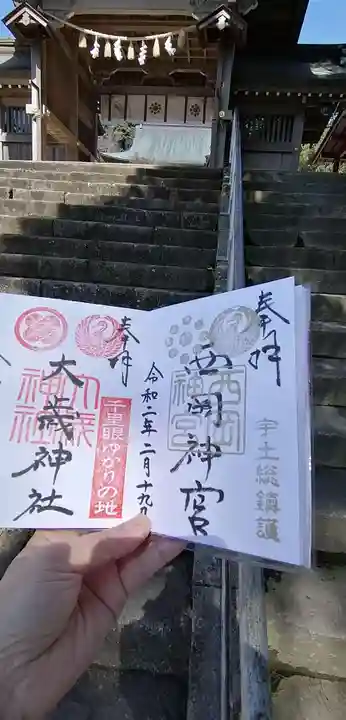 奉拝
西岡神宮
西岡
神宮
宇土総鎮護
令和二年二月十九日
奉拝
大歳神社
千里眼ゆかりの地